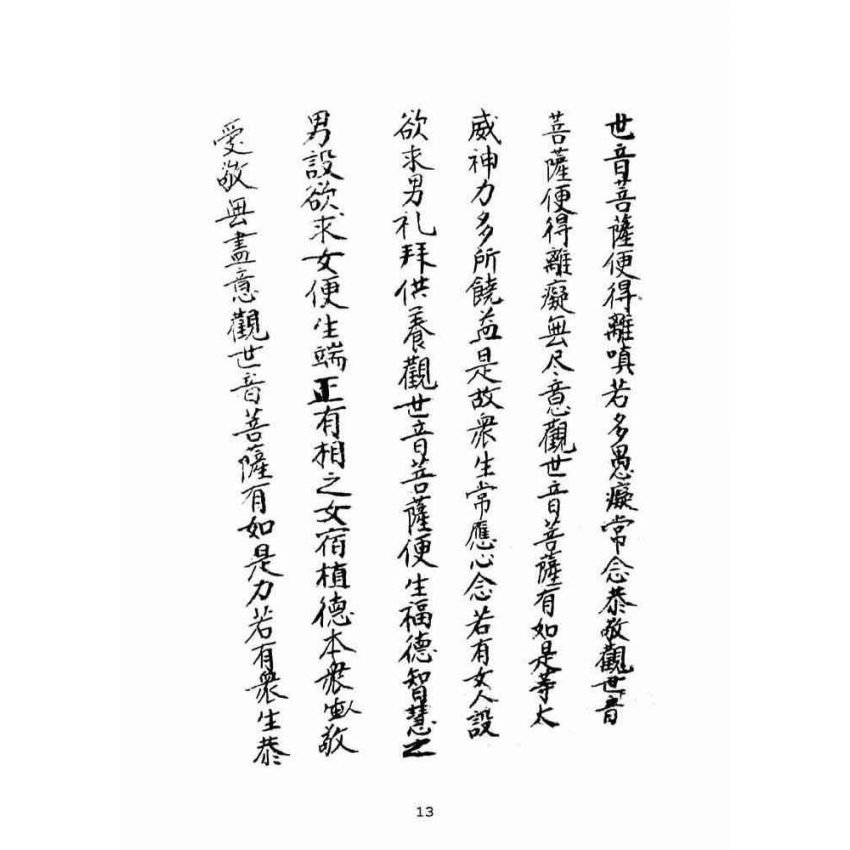 世音菩薩便得離嗔若多愚癡常念恭敬觀世音
菩薩便得離癡無尽意觀世音菩薩有如是等太
威神力多所饒益是故衆生常應心念若有女人設
欲求男礼拜供養觀世音菩薩便生福德智慧之
男設欲求女便生端正有相之女宿植德本衆人敬
愛敬無盡意觀世音菩薩有如是力若有衆生恭
13